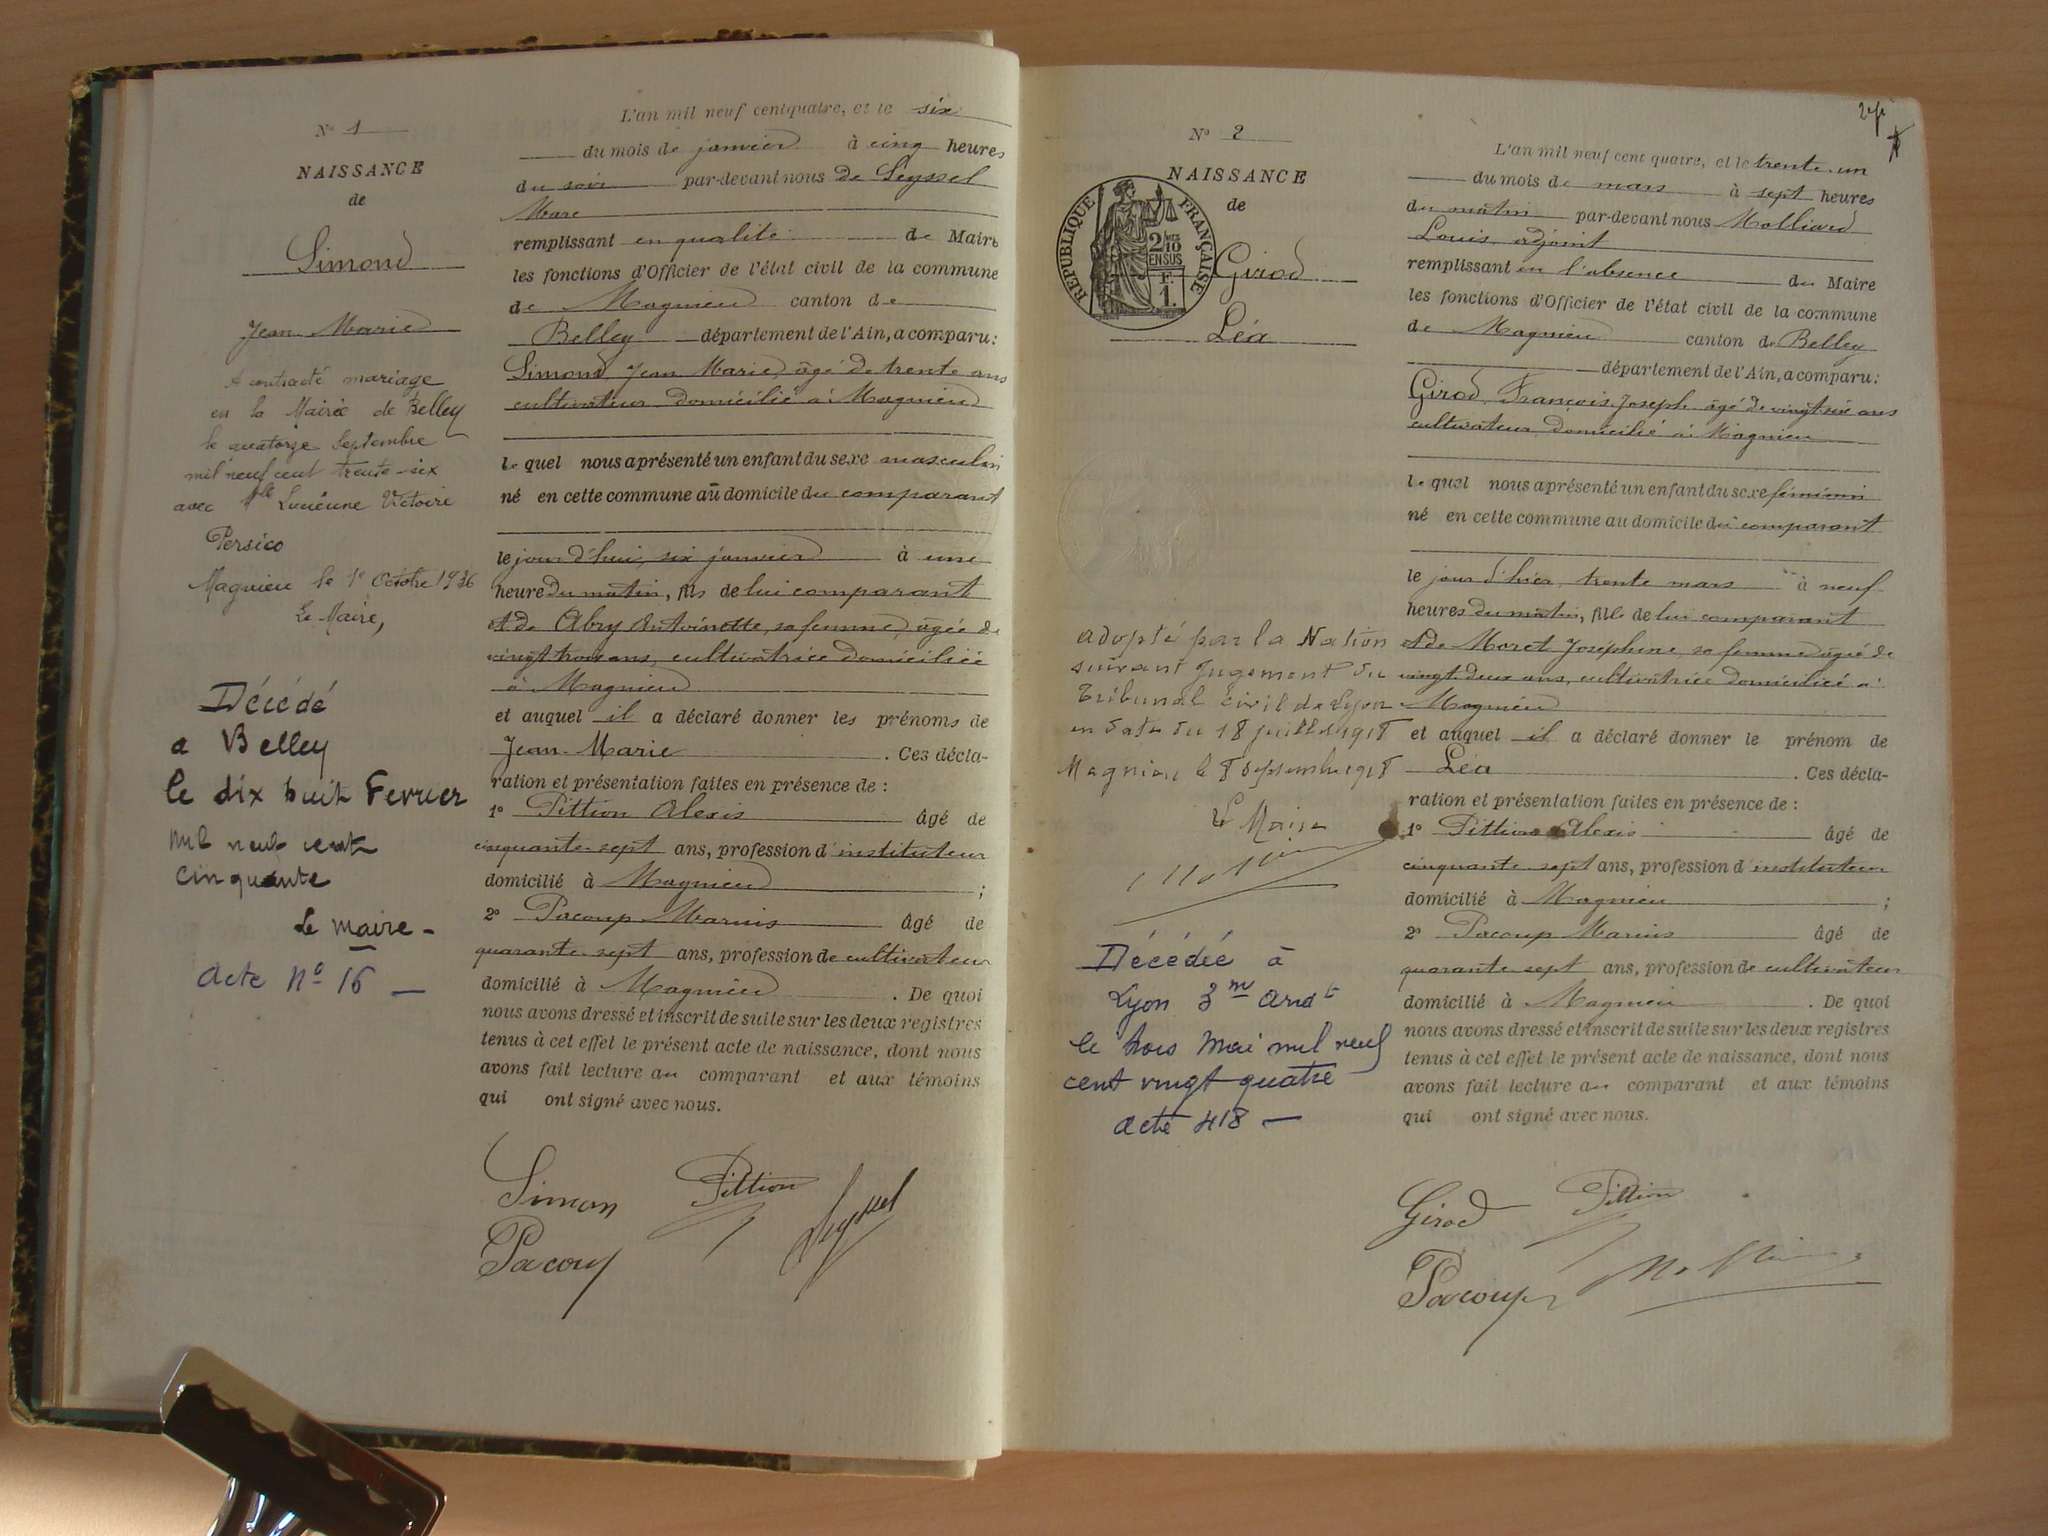 Nº 1
NAISSANCE
de
Simond
Jean Marie
A contracté mariage
en la Mairie de Belley
le quatorze Septembre
mil neuf cent trente-six
avec Mlle Lucienne Victoire
Persico
Magnieu le 1er Octobre 1936
Le Maire,
Décédé
a Belley
le dix huit Fevrier
mil neuf cent
cinquante
Le Maire -
acte nº 16 -
L'an mil neuf cent quatre, et le six
du mois de janvier à cinq heures
du soir par-devant nous de Seyssel
Marc
remplissant en qualité de Maire
les fonctions d'Officier de l'état civil de la commune
de Magnieu canton de
Belley département de l'Ain, a comparu:
Simond, Jean Marie âgé de trente ans
cultivateur domicilié à Magnieu
lequel nous a présenté un enfant du sexe masculin
né en cette commune au domicile du comparant
le jour d'hui, six janvier à une
heure du matin, fils de lui comparant
et de Abry Antoinette, sa femme, âgée de
vingt trois ans, cultivatrice domiciliée
à Magnieu
et auquel il a déclaré donner les prénoms de
Jean-Marie. Ces décla-
ration et présentation faites en présence de :
1º Pittion Alexis âgé de
cinquante-sept ans, profession d'instituteur
domicilié à Magnieu ;
2º Pacoup Marius âgé de
quarante-sept ans, profession de cultivateur
domicilié à Magnieu. De quoi
nous avons dressé et inscrit de suite sur les deux registres
tenus à cet effet le présent acte de naissance, dont nous
avons fait lecture au comparant et aux témoins
qui ont signé avec nous.
Simon Pittion Seyssel
Pacoup
Nº 2
NAISSANCE
de
REPUBLIQUE FRANÇAISE
2/10
EN SUS
F.
1.
Girod
Léa
adopté par la Nation
suivant jugement du
Tribunal civil de Lyon
en date du 18 juillet 1918
Magnieu le 8 septembre 1918
Le Maire
Décédée à
Lyon 3me Arrdt
le trois Mai mil neuf
cent vingt quatre
acte 418 -
L'an mil neuf cent quatre, et le trente-un
du mois de mars à sept heures
du matin par-devant nous Molliard
Louis, adjoint
remplissant en l'absence du Maire
les fonctions d'Officier de l'état civil de la commune
de Magnieu canton de Belley
département de l'Ain, a comparu:
Girod, François Joseph âgé de vingt six ans
cultivateur, domicilié à Magnieu
lequel nous a présenté un enfant du sexe féminin
né en cette commune au domicile du comparant
le jour d'hier, trente mars à neuf
heures du matin, fille de lui comparant
et de Moret Joséphine, sa femme âgée de
vingt-deux ans, cultivatrice domiciliée à
Magnieu
et auquel il a déclaré donner le prénom de
Léa. Ces décla-
ration et présentation faites en présence de :
1º Pittion Alexis âgé de
cinquante-sept ans, profession d'instituteur
domicilié à Magnieu ;
2º Pacoup Marius âgé de
quarante-sept ans, profession de cultivateur
domicilié à Magnieu. De quoi
nous avons dressé et inscrit de suite sur les deux registres
tenus à cet effet le présent acte de naissance, dont nous
avons fait lecture au comparant et aux témoins
qui ont signé avec nous.
Girod Pittion
Pacoup